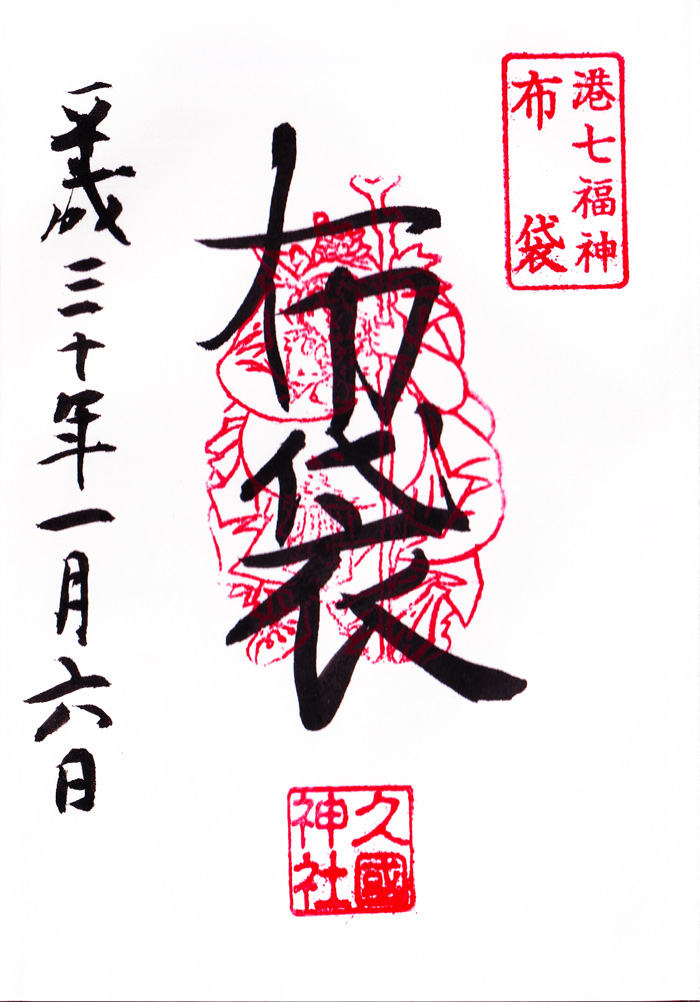 港七福神
布袋
布袋
久國
神社
平成三十年一月六日